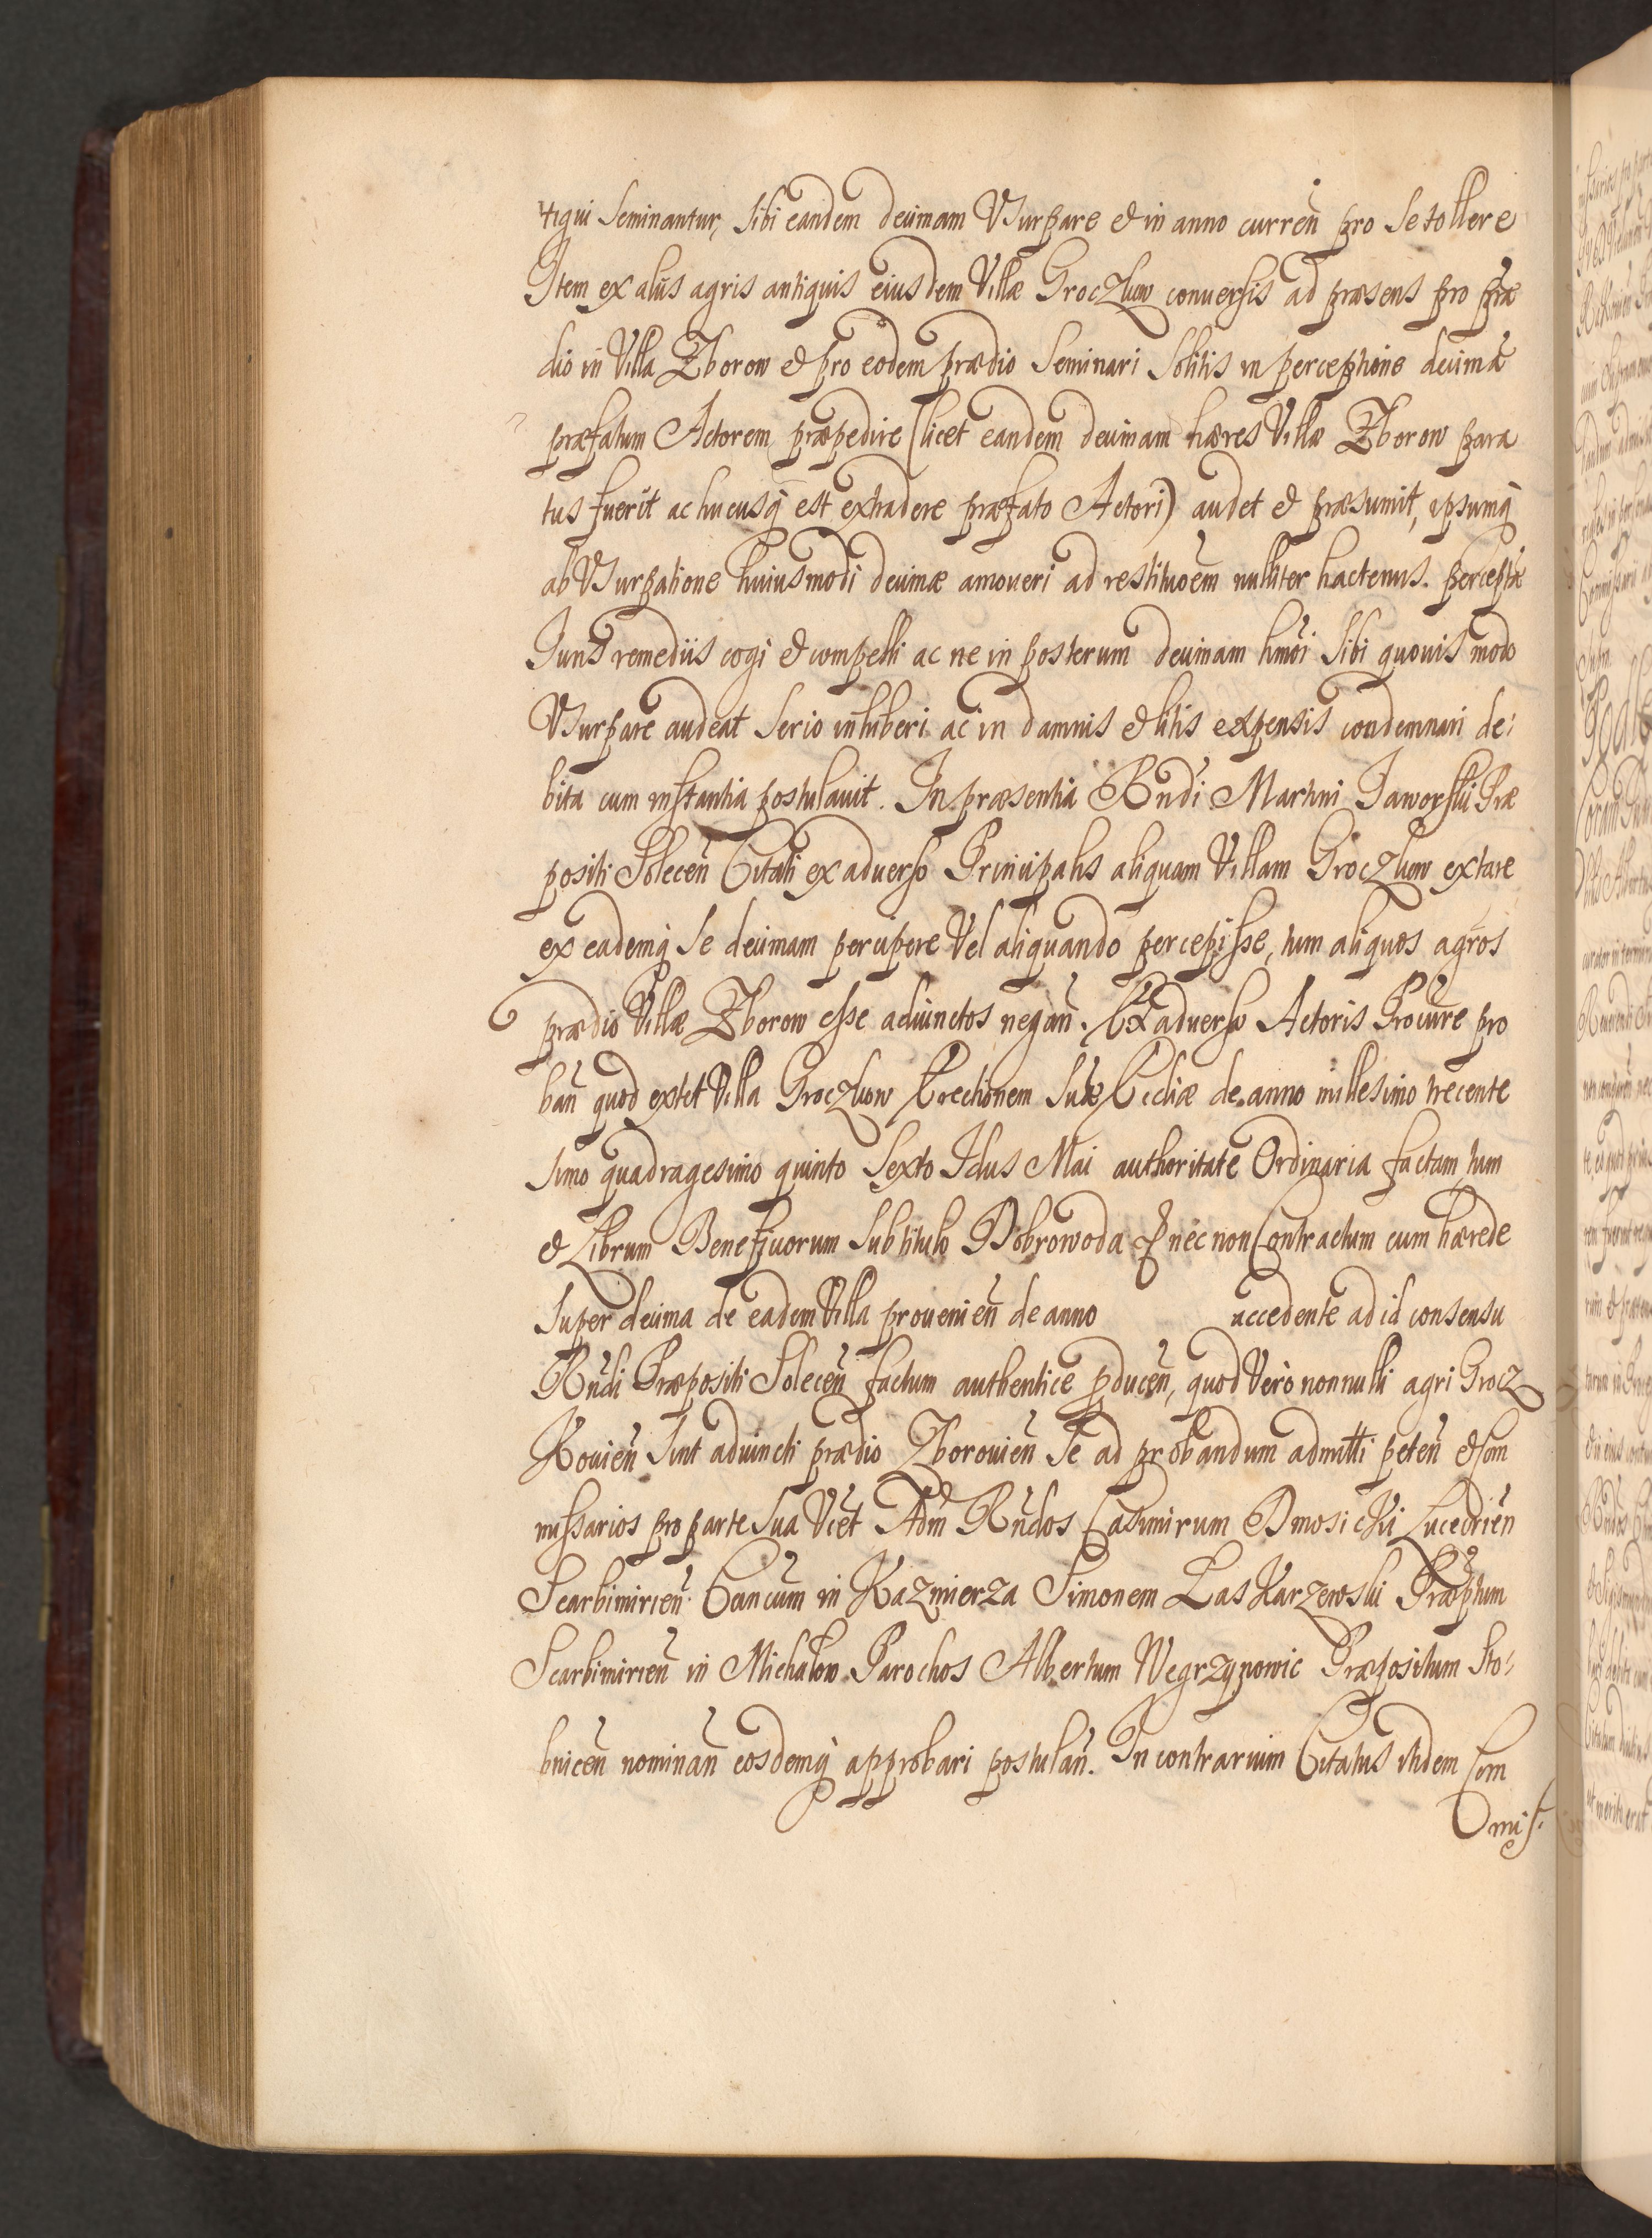 tiqui Seminantur, Sibi eandem decimam Vsurpare & in anno curreñ pro Se tollere
Item ex alijs agris antiquis eiusdem Villæ Groczkow conuersis ad præsens pro præ
dio in Villa Zborow & pro eodem prædio Seminari Solitis in perceptione decimæ
præfatum Actorem præpedire (licet eandem decimam hæres Villæ Zborow para
tus fuerit ac hucusq̃ est extradere præfato Actori) audet & præsumit, ipsumq̃
ab Vsurpatione huiusmodi decimæ amoueri ad restituõem nulliter hactenus perceptæ
Iuris remediis cogi & compelli ac ne in posterum decimam hmõi Sibi quouis modo
Vsurpare audeat Serio inhiberi ac in damnis & litis expensis condemnari de:
bita cum instantia postulauit. In præsentia Rndi Martini Jaworski Præ
positi Soleceñ Citati ex aduerso Principalis aliquam Villam Groczkow extare
ex eademq̃ Se decimam percipere Vel aliquando percepisse, tum aliquos agros
prædio Villæ Zborow esse adiunctos negañ. Ex aduerso Actoris Procure pro
bañ quod extet Villa Groczkow Erectionem Suæ Eccliæ de anno millesimo trecente
simo quadragesimo quinto Sexto Idus Mai authoritate Ordinaria factam tum
& Librum Beneficiorum Sub titulo Dobrowoda nec non Contractum cum hærede
Super decima de eadem Villa prouenieñ de anno accedente ad id consensu
Rndi Præpositi Soleceñ factum authentice pduceñ, quod Verò nonnulli agri Grocz
Kouieñ Sint adiuncti prædio Zborouieñ Se ad probandum admitti peteñ & Com
missarios pro parte Sua Vicet Adm Rndos Casimirum Dmosicki Lucedrieñ
Scarbimirieñ Cancum in Kazmierza Simonem LasKarzewski Præptum
Scarbimirieñ in Michalow Parochos Albertum Wegrzynowic Præpositum Sto:
bniceñ nominañ eosdemq̃ approbari postulañ. In contrarium Citatus itidem Com
mis: